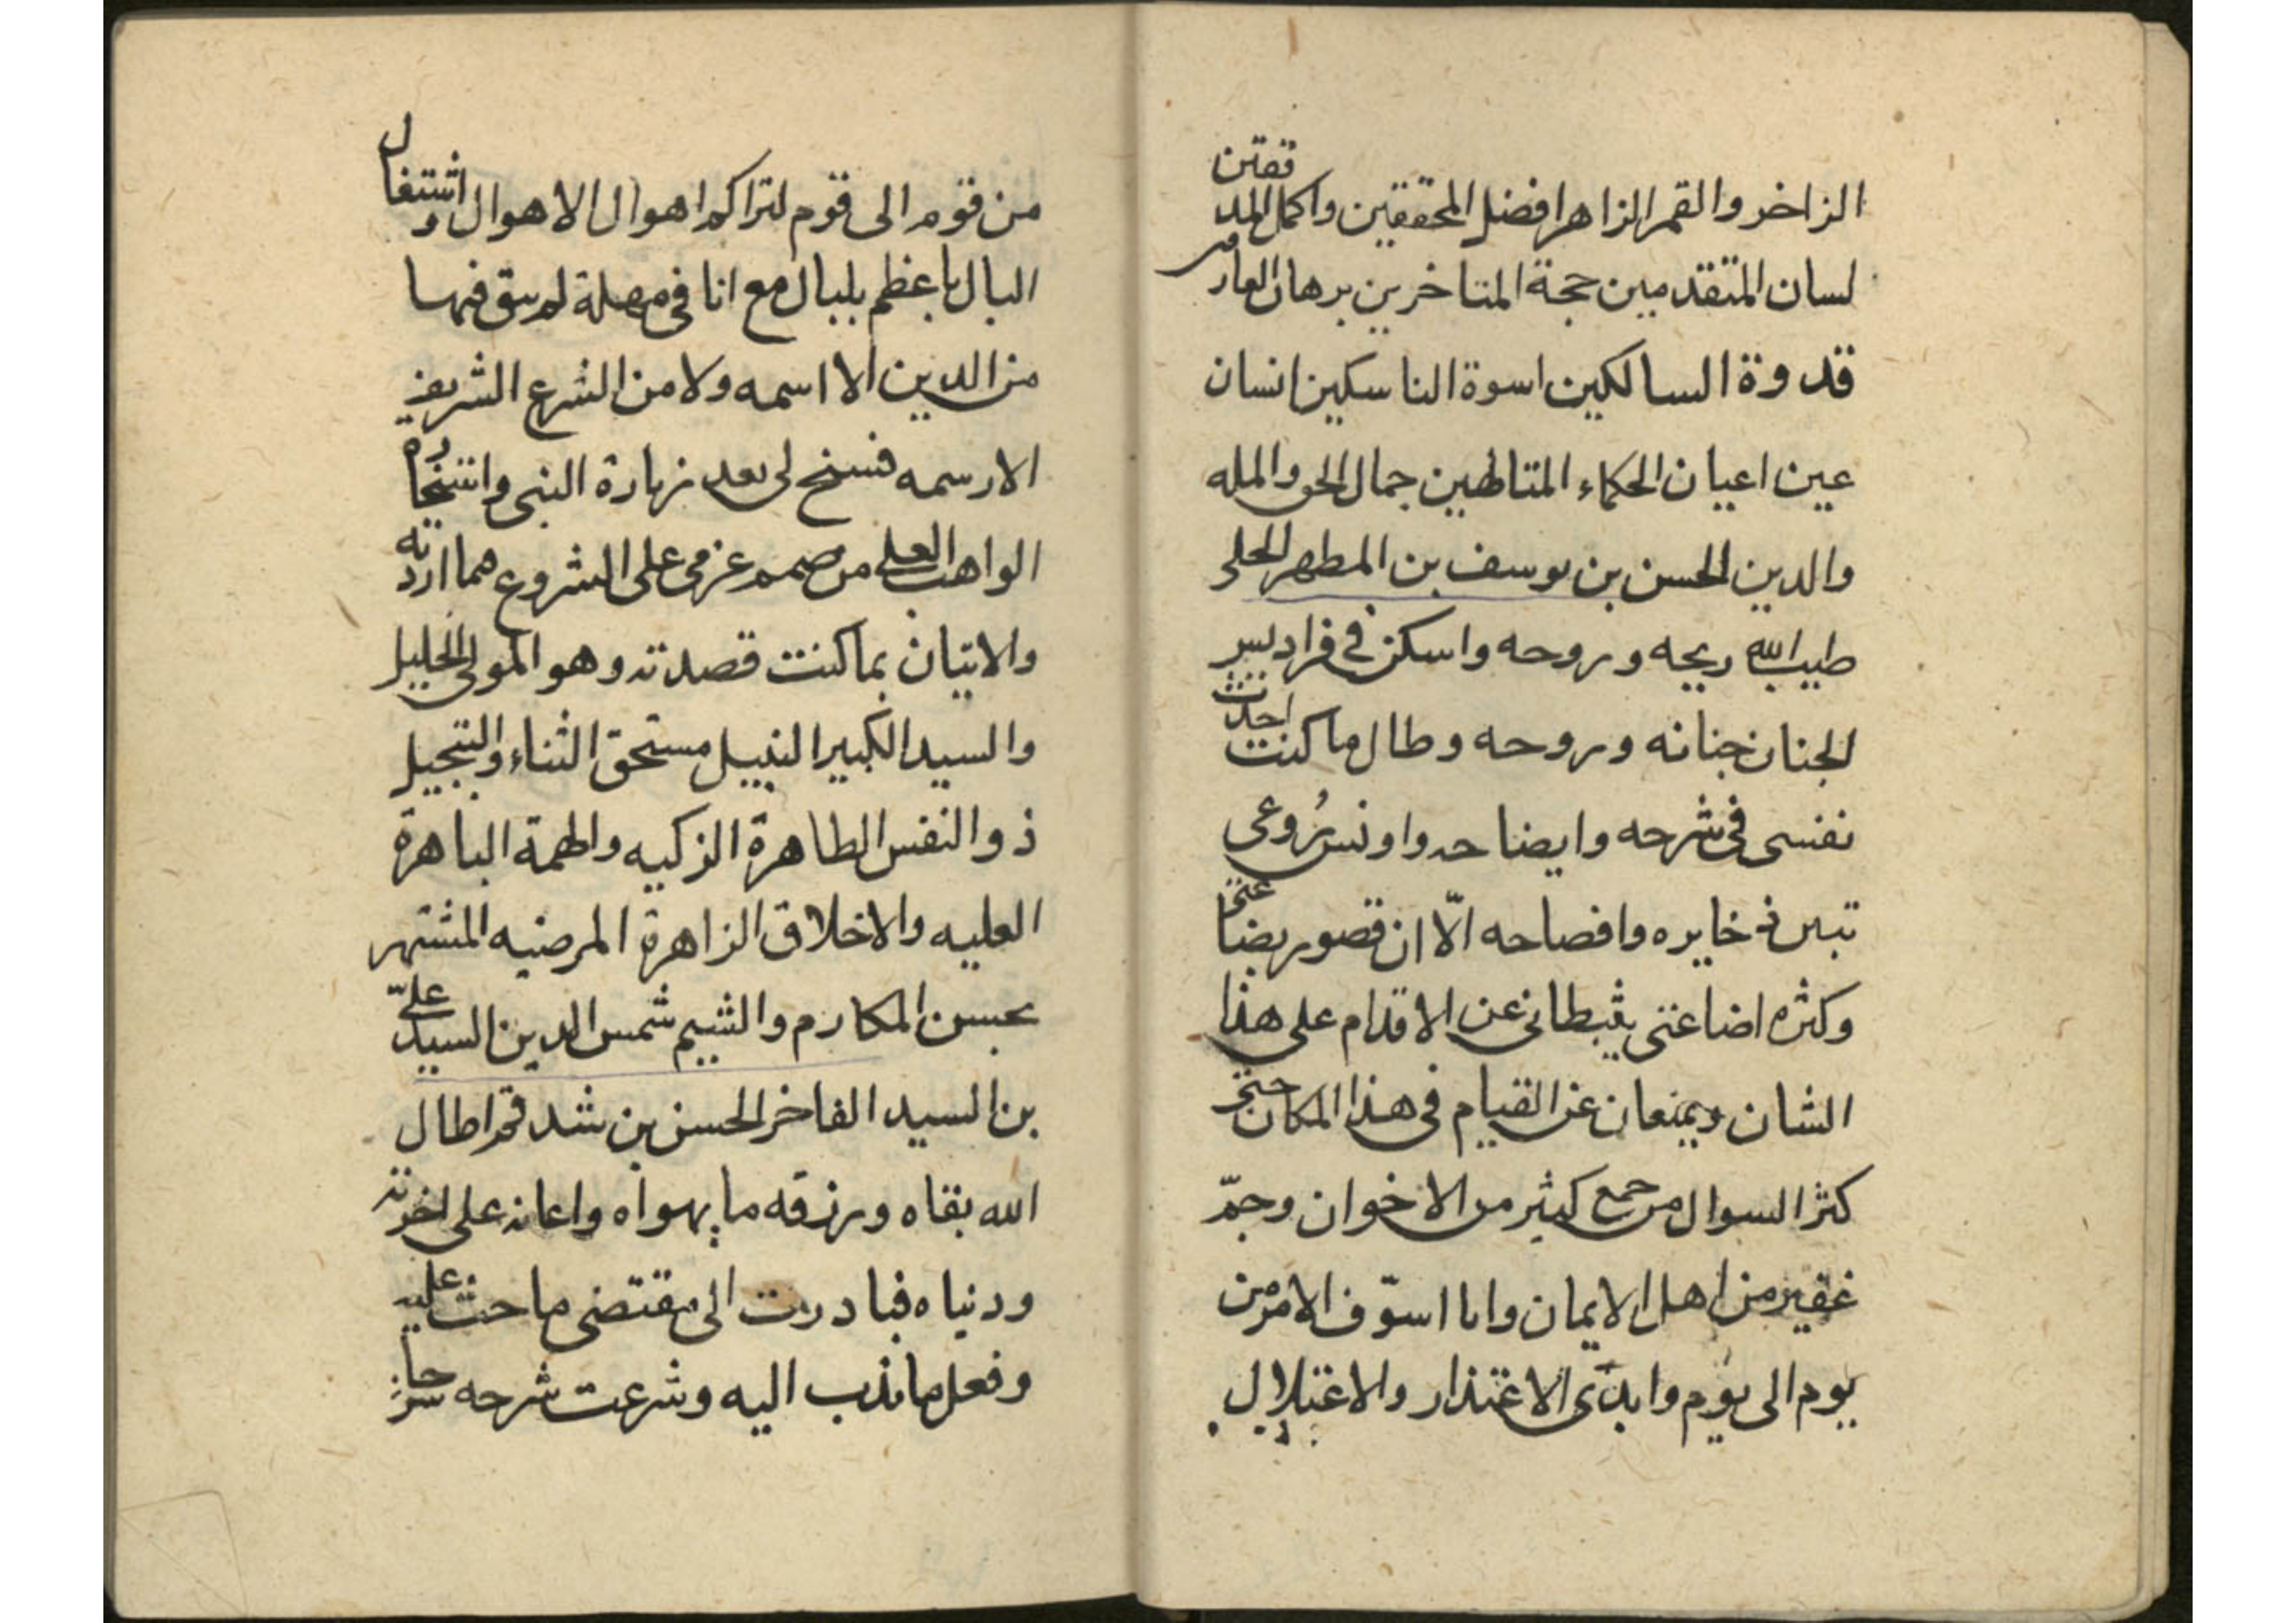 الزاخر والقمر الزاهر افضل المحققين واكمل المدققين
لسان المتقدمين حجة المتاخرين برهان العارفين
قدوة السالكين اسوة الناسكين انسان
عين اعيان الحكماء المتالهين جمال الحق والمله
والدين الحسن بن يوسف بن المطهر الحلي
طيب الله ريحه وروحه واسكن في فراديس
الجنان جنانه وروحه وطال ما كنت احدث
نفسي في شرحه وايضاحه واونس روعي
تبين ذخايره وافصاحه الّا ان قصور بضاعتي
وكثره اضاعتي يثبطاني عن الاقدام على هذا
الشان ويمنعان عن القيام في هذا المكان حتى
كثر السوال من جمع كثير من الاخوان وجمّ
غفير من اهل الايمان وانا اسوّف الامر من
يوم الى يوم وابدي الاعتذار والاعتلال
من قوم الى قوم لتراكم اهوال الاهوال واشتغال
البال باعظم بلبال مع انا في مهلة لم يبق فيها
من الدين الا اسمه ولا من الشرع الشريف
الا رسمه فسنح لي بعد زيارة النبي
الواهب العلى من صمم عزمي على الشروع مما اردته
والاتيان بما كنت قصدته وهو المولى الجليل
والسيد الكبير النبيل مستحق الثناء والتبجيل
ذو النفس الطاهرة الزكيه والهمة الباهرة
العليه والاخلاق الزاهرة المرضيه المشتهر
بحسن المكارم والشيم شمس الدين السيد عليّ
بن السيد الفاخر الحسن بن شدقم اطال
الله بقاه ورزقه ما يهواه واعانه على اخرته
ودنياه فبادرت الى مقتضى ما حث عليه
وفعل ما نذب اليه وشرعت شرحه